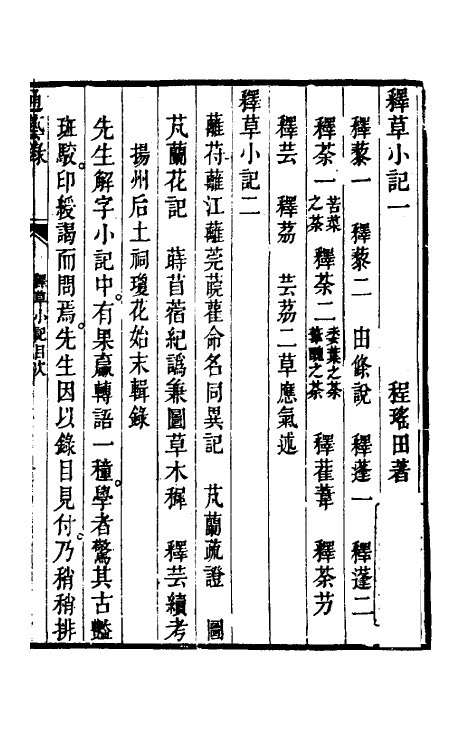 釋草小記一　程瑤田著
釋藜一　釋藜二　由條說　釋蓬一　釋蓬二
釋荼一苦菜之荼　釋荼二委葉之荼雚醜之荼　釋萑葦　釋荼芀
釋芸　釋茘　芸茘二草應氣述
釋草小記二
蘺苻蘺江蘺莞蒝雚命名同異記　芄蘭疏證　圖
芄蘭花記　蒔苜蓿紀譌兼圖草木樨　釋芸續考
揚州后土祠瓊花始末輯錄
先生解字小記中有果臝轉語一種學者驚其古豔
斑駮印綬謁而問焉先生因以錄目見付乃稍稍排
通藝錄　釋草小記目次